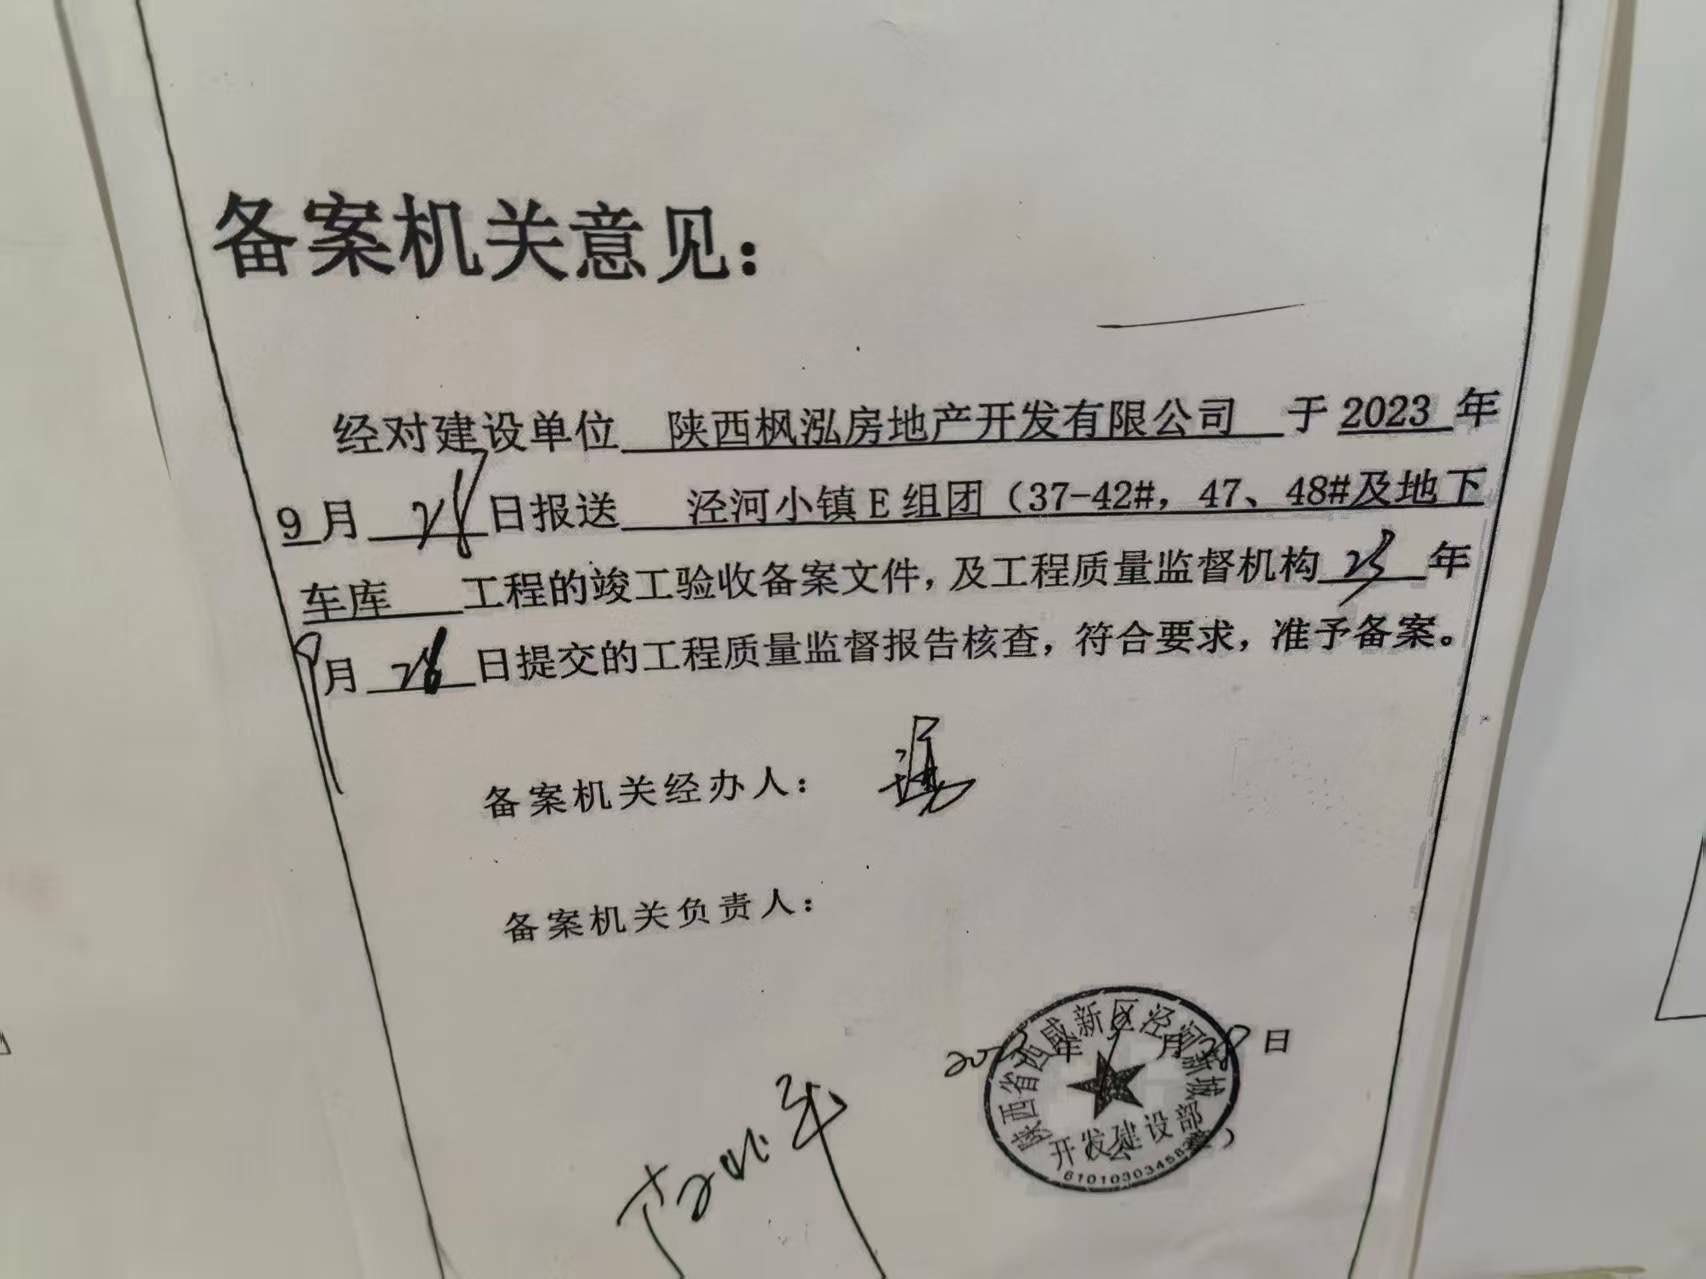 备案机关意见：
经对建设单位 陕西枫泓房地产开发有限公司 于 2023 年
9 月 28 日报送 泾河小镇 E 组团（37-42#，47、48#及地下
车库 工程的竣工验收备案文件，及工程质量监督机构 23 年
9 月 26 日提交的工程质量监督报告核查，符合要求，准予备案。
备案机关经办人：
备案机关负责人：
2023 年 9 月 28 日
陕西省西咸新区泾河新城
开发建设部